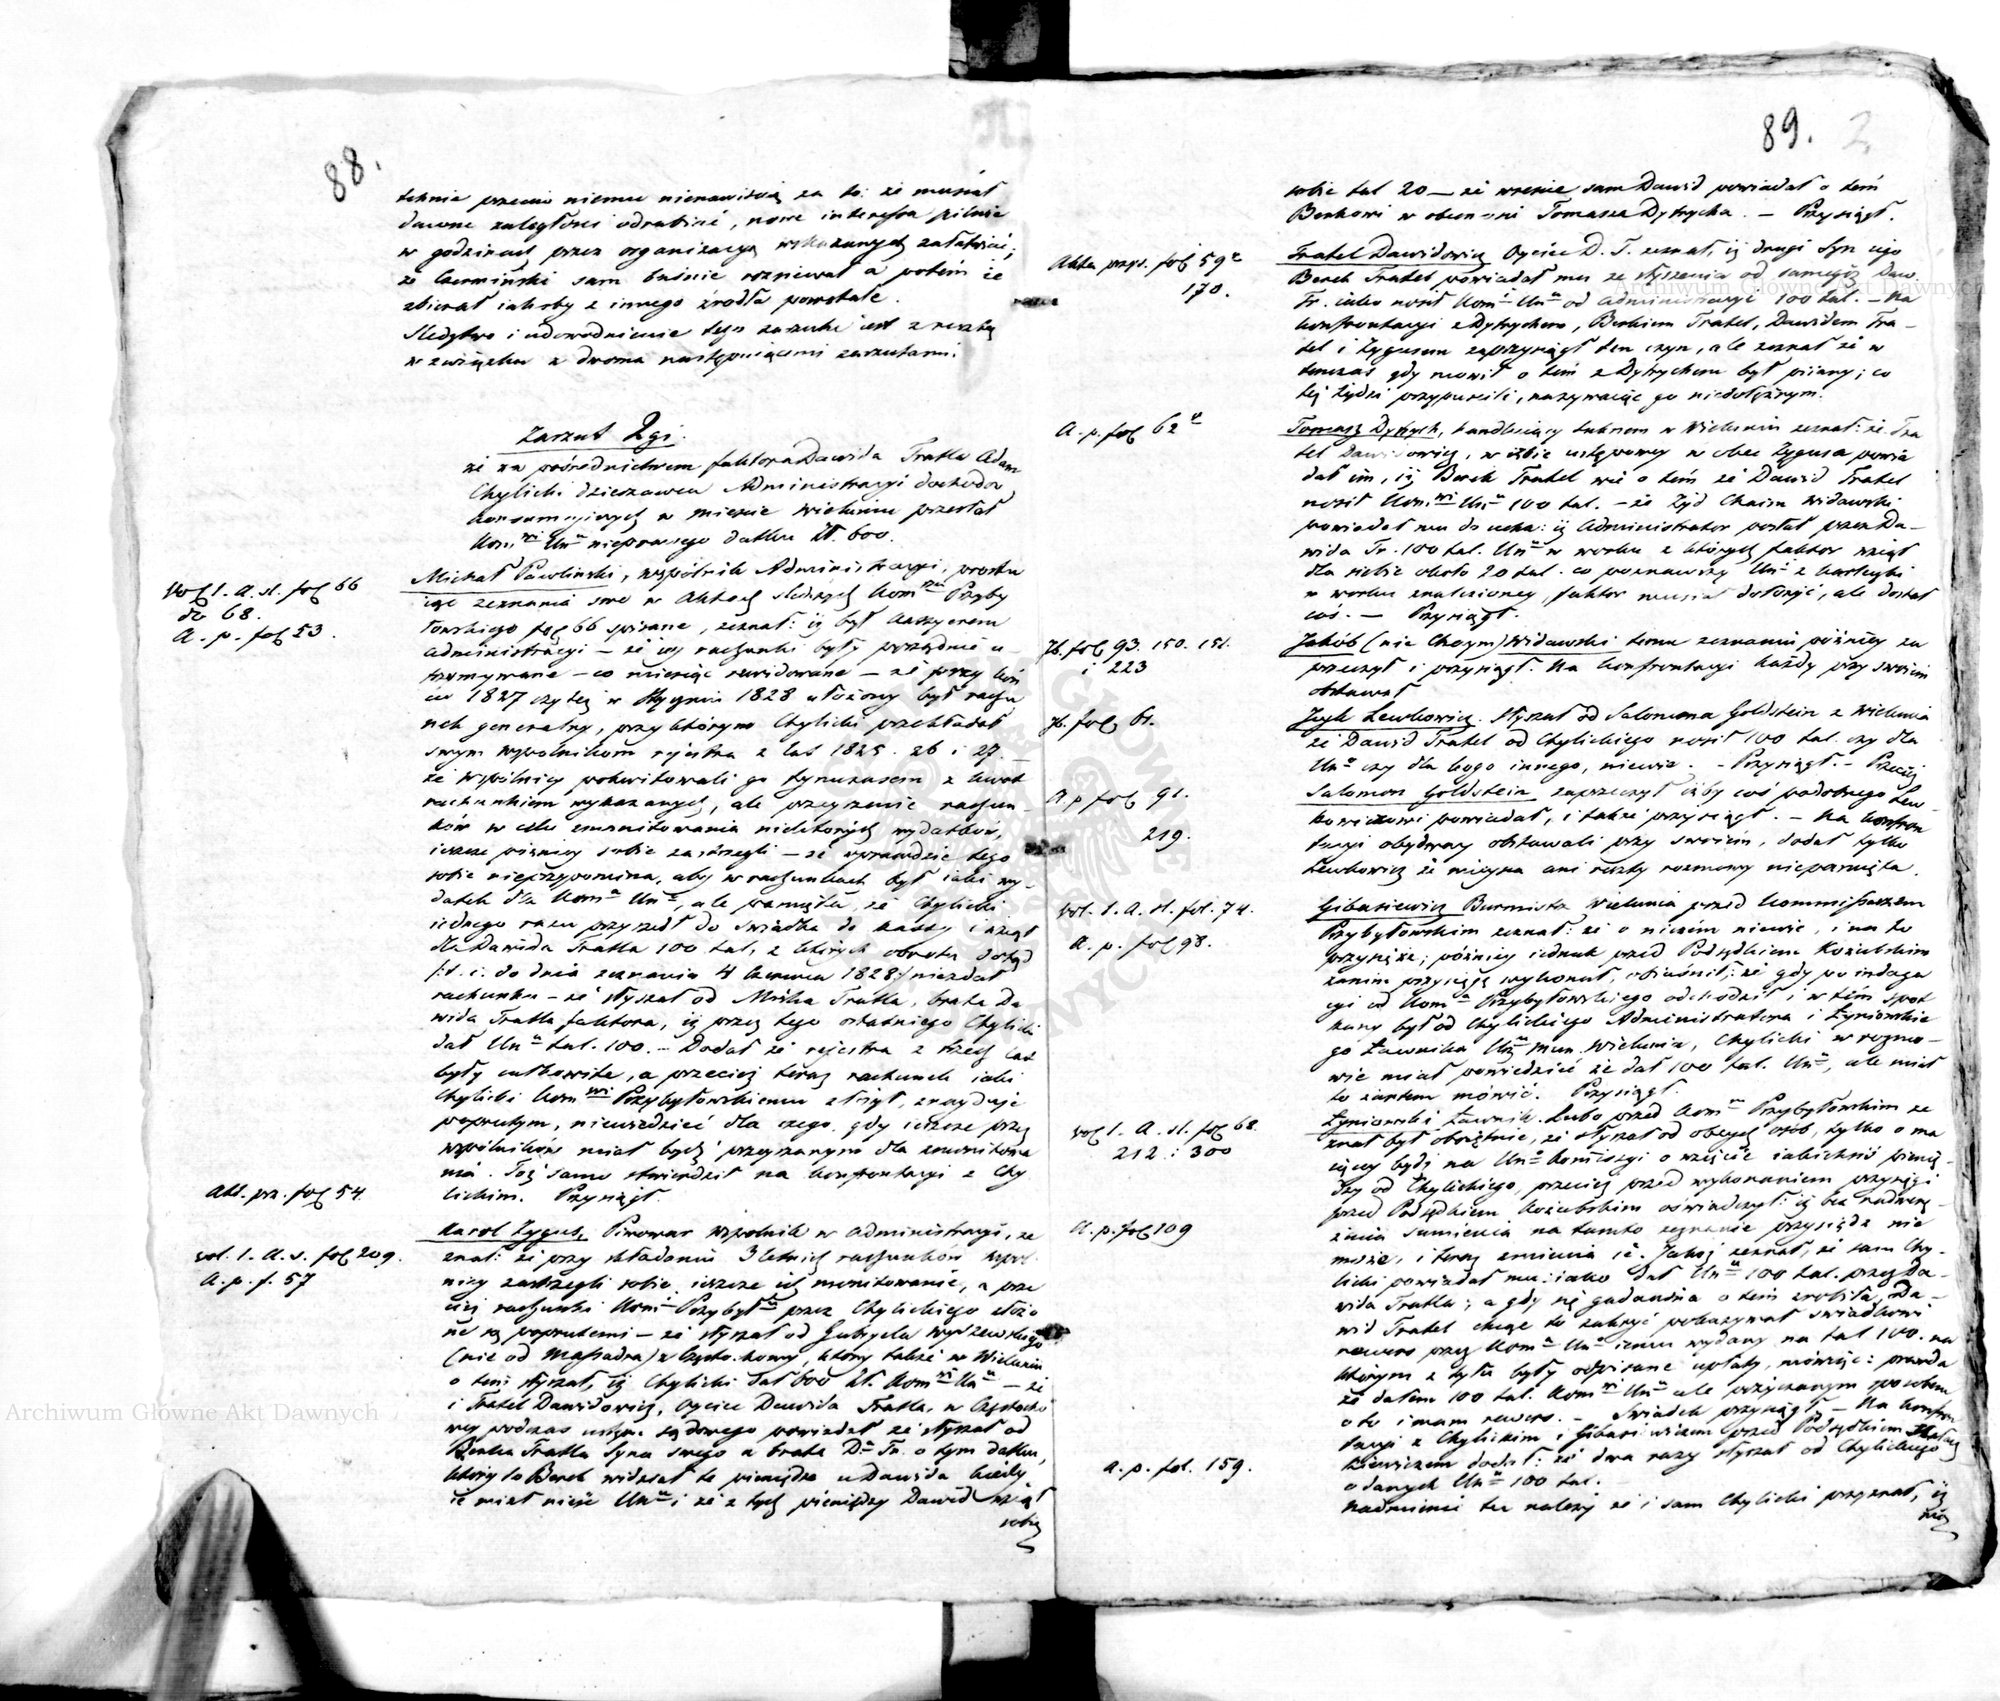 88.
tchnie przeciw niemu nienawiścią za to: że musiał
dawne zaległości odrabiać, nowe interessa pilnie
w godzinach przez organizacyą wskazanych załatwiać;
że Czermiński sam baśnie rozsiewał a potem je
zbierał jakoby z innego źródła powstałe.
Śledztwo i udowodnienie tego zarzutu jest zresztą
w związku z dwoma następującemi zarzutami.
Zarzut 2gi.
że za pośrednictwem faktora Dawida Tratla Adam
Chylicki dzierzawca Administracyi dochodów
konsumcyjnych w mieście Wieluniu przesłał
Kom. Un nieprawego datku Zł. 600.
Vol 1. A. sl. fol 66
do 68.
A. p. fol 53.
Michał Pawliński, wspólnik Administracyi, prostu
iąc zeznania swe w Aktach śledczych Kom Przyby
łowskiego fol 66 spisane, zeznał: iż był kassyerem
administracyi – że jej rachunki były porządnie u-
trzymywane – co miesiąc rewidowane – że przy koń
cu 1827 czy też w Styczniu 1828 ułożony był rachu
nek generalny, przy którym Chylicki przekładał
swym wspolnikom rejestra z lat 1825. 26 i 27. –
że wspólnicy pokwitowali go tymczasem z kwot
rachunkiem wykazanych, ale przejrzenie rachun-
ków w celu zmonitowania niektórych wydatków,
jeszcze późniey sobie zastrzegli – że wprawdzie tego
sobie nieprzypomina, aby w rachunkach był jaki wy-
datek dla Kom Un, ale pamięta, że Chylicki
jednego razu przyszedł do świadka do kassy i wziął
dla Dawida Tratla 100 tal, z których obrotu dotąd
/:t. i. do dnia zeznania 4 Czerwca 1828:/ niezdał
rachunku – że słyszał od Mośka Tratla, brata Da
wida Tratla faktora, iż przez tego ostatniego Chylicki
dał Un tal. 100. – Dodał że rejestra z trzech lat
były całkowite, a przeciez teraz rachunek jaki
Chylicki Kom Przybyłowskiemu złożył, znayduje
poprutym, niewiedzieć dla czego, gdy jeszcze przez
wspólników miał bydź przejrzanym dla zmonitowa
nia. Toż samo stwierdził na konfrontacyi z Chy
lickim. Przysiągł.
Akt. prz. fol 54.
vol. 1. A. s. fol 209.
A. p. f. 57
Karol Zygus, Piwowar wspolnik w administracyi, ze
znał: że przy składaniu 3 letnich rachunków wspól
nicy zastrzegli sobie jeszcze ich monitowanie, a prze
cież rachunki Kom Przybył przez Chylickiego złożo
ne są poprutemi – że słyszał od Gabryela
(nie od ) z Często.howy, który także w Wieluniu
o tem słyszał, iż Chylicki dał 600 Zł. Kom Un – że
i Tratel Dawidowicz, Oyciec Dawida Tratla, w Częstocho
wey podczas sądowego powiedał że słyszał od
Berka Tratla Syna swego a brata D Tr. o tym datku,
który to Berek widział te pieniądze u Dawida kiedy
je miał nieść Un i że z tych pieniędzy Dawid wziął
sobie
89. 2
sobie tal 20 – że wreście sam Dawid powiadał o tem
Berkowi w obecności Tomasza Dytrycha. – Przysiągł.
Akta przys. fol 59
170.
Tratel Dawidowicz Oyciec D. T. zeznał, iż drugi Syn jego
Berek Tratel powiadał mu ze słyszenia od samegoż Daw.
Tr. jako nosił Kom Un od administracyi 100 tal. – Na
konfrontacyi z Dytrychem, Berkiem Tratel, Dawidem Tra-
tel i Zygusem zaprzysiągł ten czyn, ale zeznał że w
tenczas gdy mowił o tem z Dytrychem był pijany; co
też żydzi przypuścili, nazywając go niedołężnym.
A. p. fol 62
Tomasz Dytrych, handlujący suknem w Wieluniu zeznał: że Tra
tel Dawidowicz, w izbie ustępowey w obec Zygusa powia
dał im, iż Berek Tratel wie o tem że Dawid Tratel
nosił Kom Un 100 tal. – że Żyd Chaim Widawski
powiadał mu do ucha: iż Administrator posłał przez Da-
wida Tr. 100 tal. Un w worku z których faktor wziął
dla siebie około 20 tal. co poznawszy Un z karteczki
w worku znalezioney, faktor musiał dołożyć, ale dostał
coś. – Przysiągł.
Jb. fol 93. 150. 151.
i 223
Jakób (nie Chaym) Widawski temu zeznaniu późniey za
przeczył i przysiągł. Na konfrontacyi każdy przy swoim
obstawał
Jb. fol. 61.
Jcyk Lewkowicz. słyszał od Salomona Goldstein z Wielunia
że Dawid Tratel od Chylickiego nosił 100 tal. czy dla
Un czy dla kogo innego, niewie. – Przysiągł. – Przecież
A. p fol 91.
219.
Salomon Goldstein zaprzeczył iżby coś podobnego Lew-
kowiczowi powiadał, i także przysiągł. – Na konfron
tacyi obydway obstawali przy swoim, dodał tylko
Lewkowicz że mieysca ani reszty rozmowy niepamięta.
vol. 1. A. sl. fol. 74.
A. p. fol 98.
Gibasiewicz Burmistz Wielunia przed Kommissarzem
Przybyłowskim zeznał: że o niczém niewie, i na to
przysięże; późniey jednak przed Podsędkiem Kozubskim
zanim przysięgę wykonał, objaśnił: że gdy po indaga
cyi od Kom Przybyłowskiego odchodził i w tem spot
kany był od Chylickiego Administratora i Zyniowskie
go Ławnika Urz Mun. Wielunia, Chylicki w rozmo-
wie miał powiedzieć że dał 100 tal. Un, ale miał
to żartem mówić. Przysiągł.
vol 1. A. sl. fol 68.
212. i 300
Zyniowski Ławnik. Lubo przed Kom Przybyłowskim ze
znał był obojętnie, że słyszał od obcych osób, tylko o ma
iącey bydź na Un Komissyi o wzięcie jakichciś pienię-
dzy od Chylickiego, przeciez przed wykonaniem przysięgi
przed Podsędkiem Kozubskim oświadczył: iż bez nadwerę-
żenia sumienia na tamto zeznanie przysiądz nie
A. p. fol 109
może, i teraz zmienia je. Jakoż zeznał, że sam Chy-
licki powiadał mu: jako dał Un 100 tal. przez Da-
wida Tratla; a gdy się gadanina o tem zrobiła, Da-
wid Tratel chcąc to zakryć pokazywał świadkowi
rewers przez Kom Un jemu wydany na tal 100. na
którym z tyłu były odpisane upłaty, mówiąc: prawda
że dałem 100 tal. Kom Un ale pożyczanym sposobem
a to i mam rewers. – Świadek przysiągł – Na konfron
tacyi z Chylickim i Gibasiewiczem przed Podsędkiem
dodał: że dwa razy słyszał od Chylickiego
A. p. fol. 159.
o danych Un 100 tal.
Nadmienić tu należy że i sam Chylicki przyznał, iż